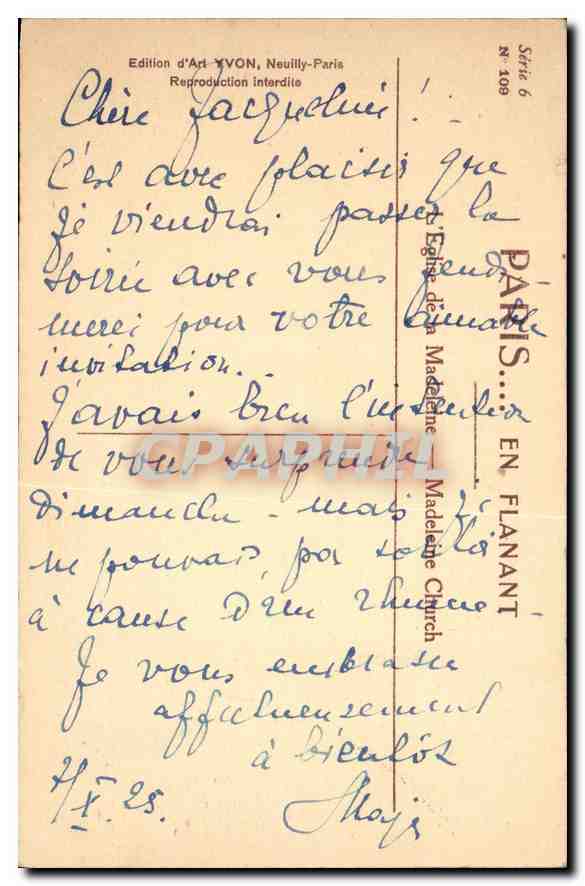 Edition d'Art YVON, Neuilly-Paris
Reproduction interdite
Série 6
N° 109
PARIS.... EN FLANANT
L'Eglise de la Madeleine - Madeleine Church
Chère Jacqueline !
C'est avec plaisir que
je viendrai passer la
soirée avec vous jeudi
merci pour votre aimable
invitation..
J'avais bien l'intention
de vous surprendre
dimanche - mais je
ne pouvais pas sortir
à cause d'un rhume -
Je vous embrasse
affectueusement
à bientôt
7/X 25.
CPAPHIL.COM